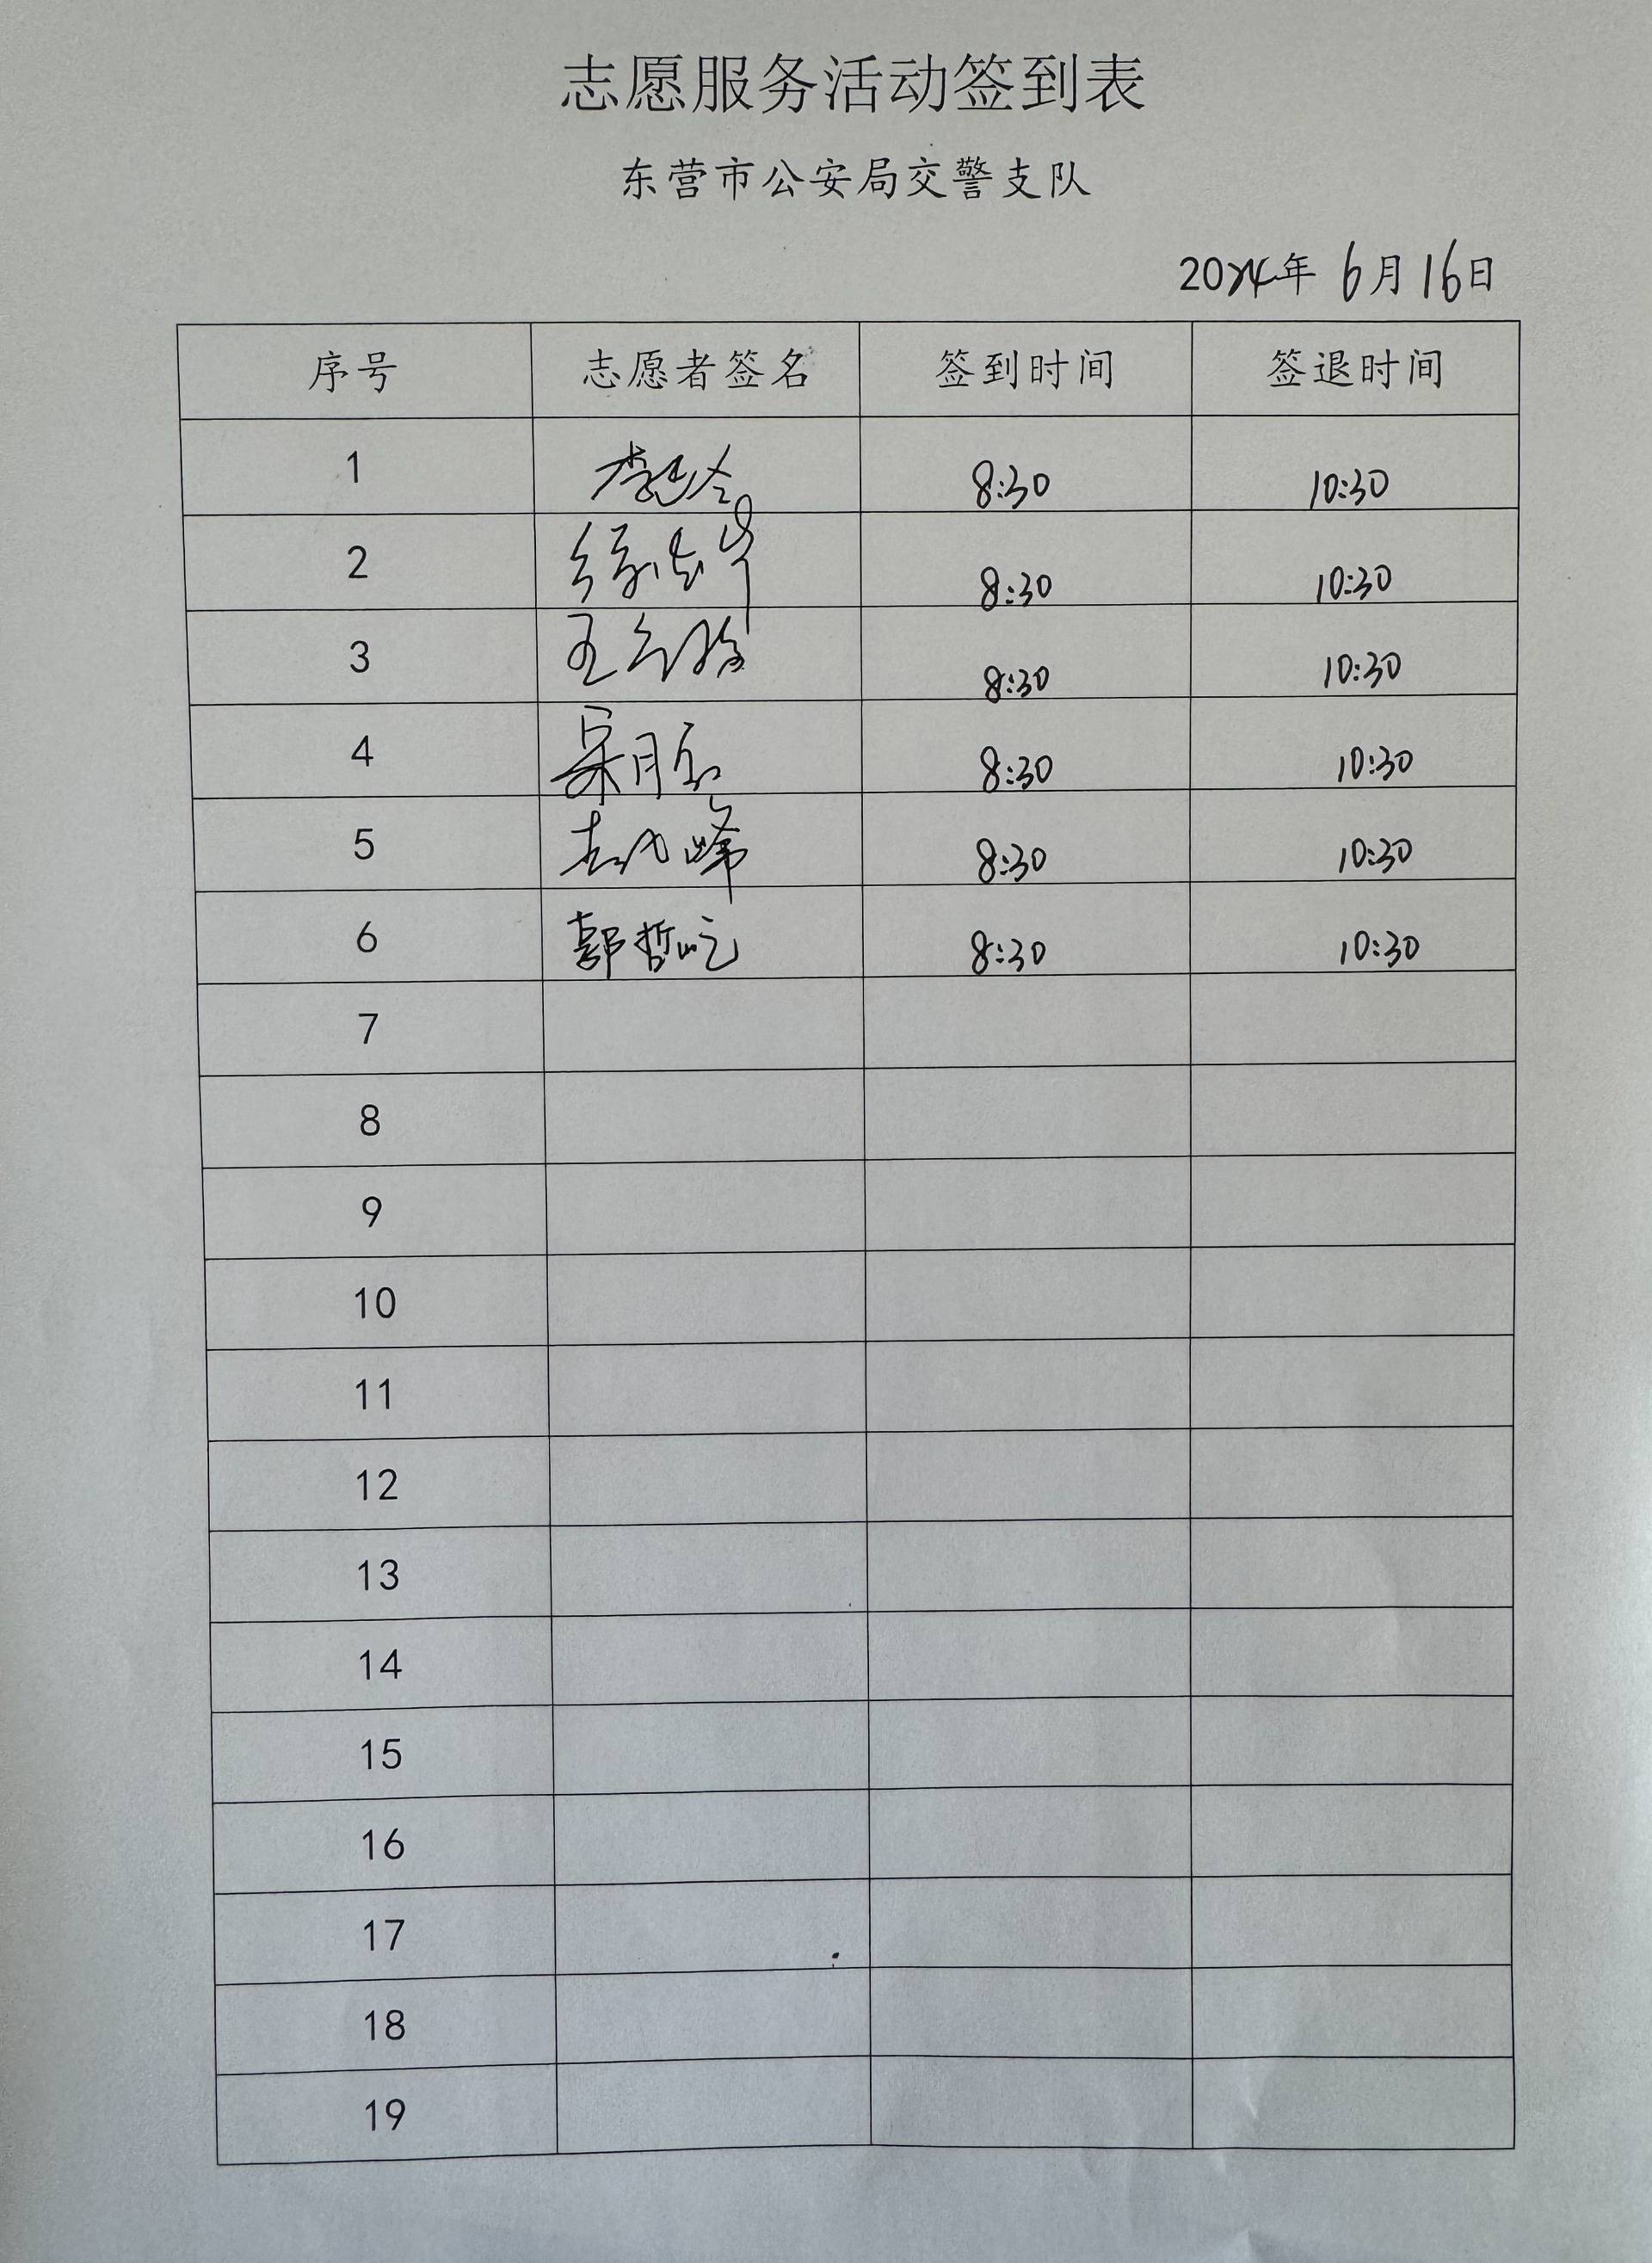 志愿服务活动签到表
东营市公安局交警支队
2024年 6月16日
序号 志愿者签名 签到时间 签退时间
1 8:30 10:30
2 8:30 10:30
3 王 8:30 10:30
4 8:30 10:30
5 峰 8:30 10:30
6 郭哲屹 8:30 10:30
7
8
9
10
11
12
13
14
15
16
17
18
19